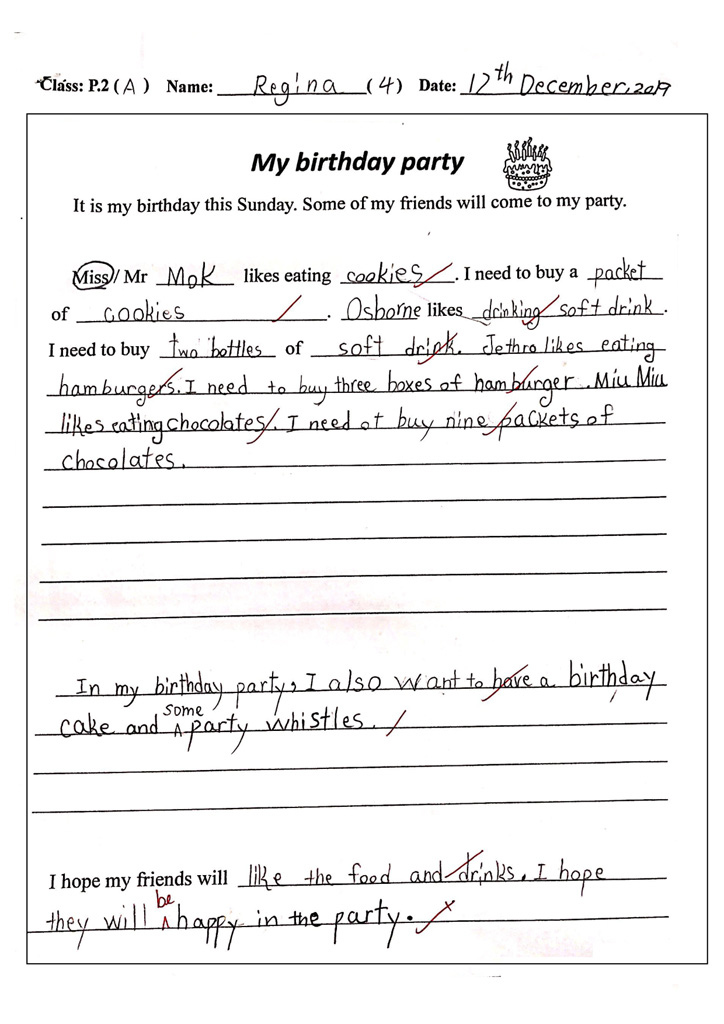 Class: P.2 (A) Name: Regina (4) Date: 12th December, 2019
My birthday party
It is my birthday this Sunday. Some of my friends will come to my party.
Miss / Mr Mok likes eating cookies. I need to buy a packet
of cookies. Osborne likes drinking soft drink.
I need to buy two bottles of soft drink. Jethro likes eating
hamburgers. I need to buy three boxes of hamburger. Miu Miu
likes eating chocolates. I need ot buy nine packets of
chocolates.
In my birthday party, I also want to have a birthday
cake and some party whistles.
I hope my friends will like the food and drinks. I hope
they will be happy in the party.